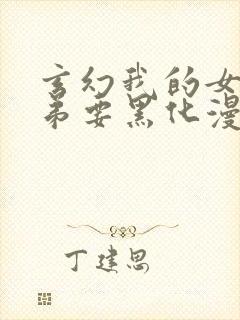 玄幻我的女
弟要黑化漫
丁建思